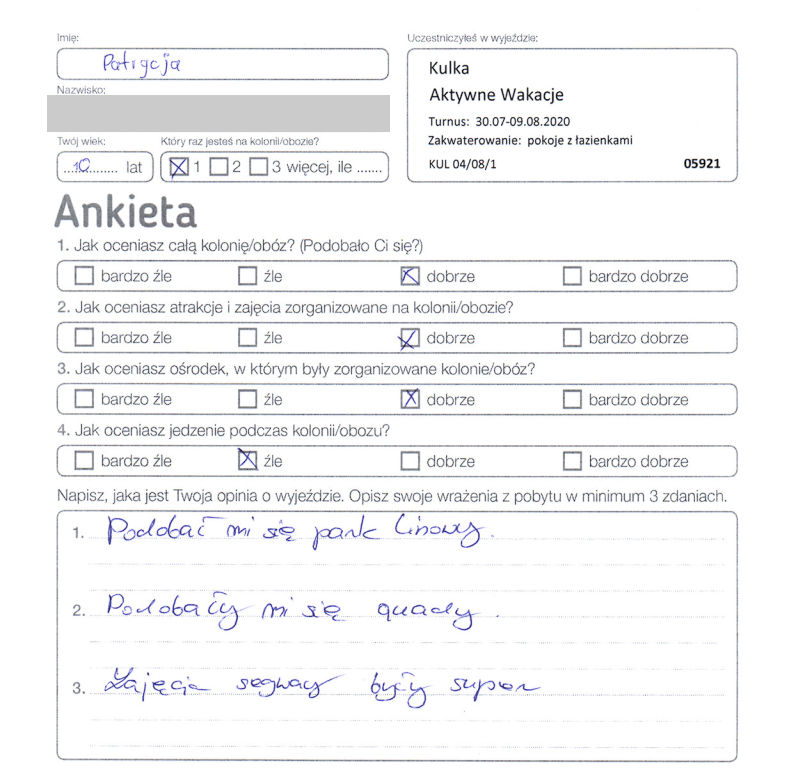 Imię:
Patrycja
Nazwisko:
Twój wiek:
...10........ lat
Który raz jesteś na kolonii/obozie?
1 2 3 więcej, ile .......
Uczestniczyłeś w wyjeździe:
Kulka
Aktywne Wakacje
Turnus: 30.07-09.08.2020
Zakwaterowanie: pokoje z łazienkami
KUL 04/08/1 05921
Ankieta
1. Jak oceniasz całą kolonię/obóz? (Podobało Ci się?)
bardzo źle źle dobrze bardzo dobrze
2. Jak oceniasz atrakcje i zajęcia zorganizowane na kolonii/obozie?
bardzo źle źle dobrze bardzo dobrze
3. Jak oceniasz ośrodek, w którym były zorganizowane kolonie/obóz?
bardzo źle źle dobrze bardzo dobrze
4. Jak oceniasz jedzenie podczas kolonii/obozu?
bardzo źle źle dobrze bardzo dobrze
Napisz, jaka jest Twoja opinia o wyjeździe. Opisz swoje wrażenia z pobytu w minimum 3 zdaniach.
1. Podobał mi się park linowy.
2. Podobały mi się quady.
3. Zajęcia segway były super